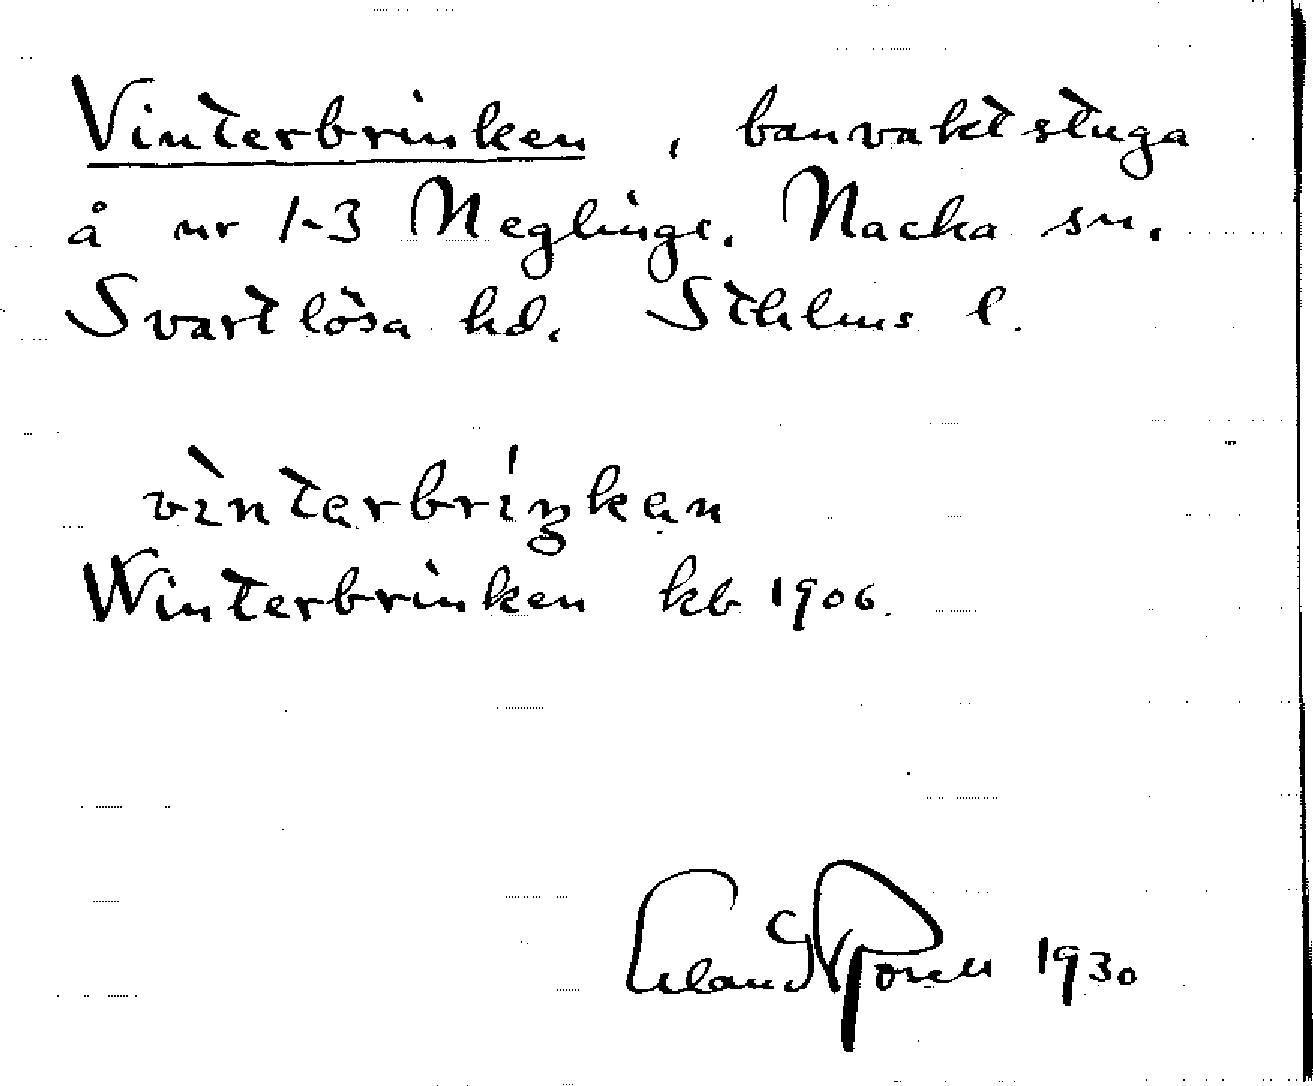 Vinterbrinken, banvaktstuga
å nr 1-3 Neglinge. Nacka sn.
Svartlösa hd. Sthlms l.
vìntərbríŋkən
Winterbrinken kb 1906.
1930